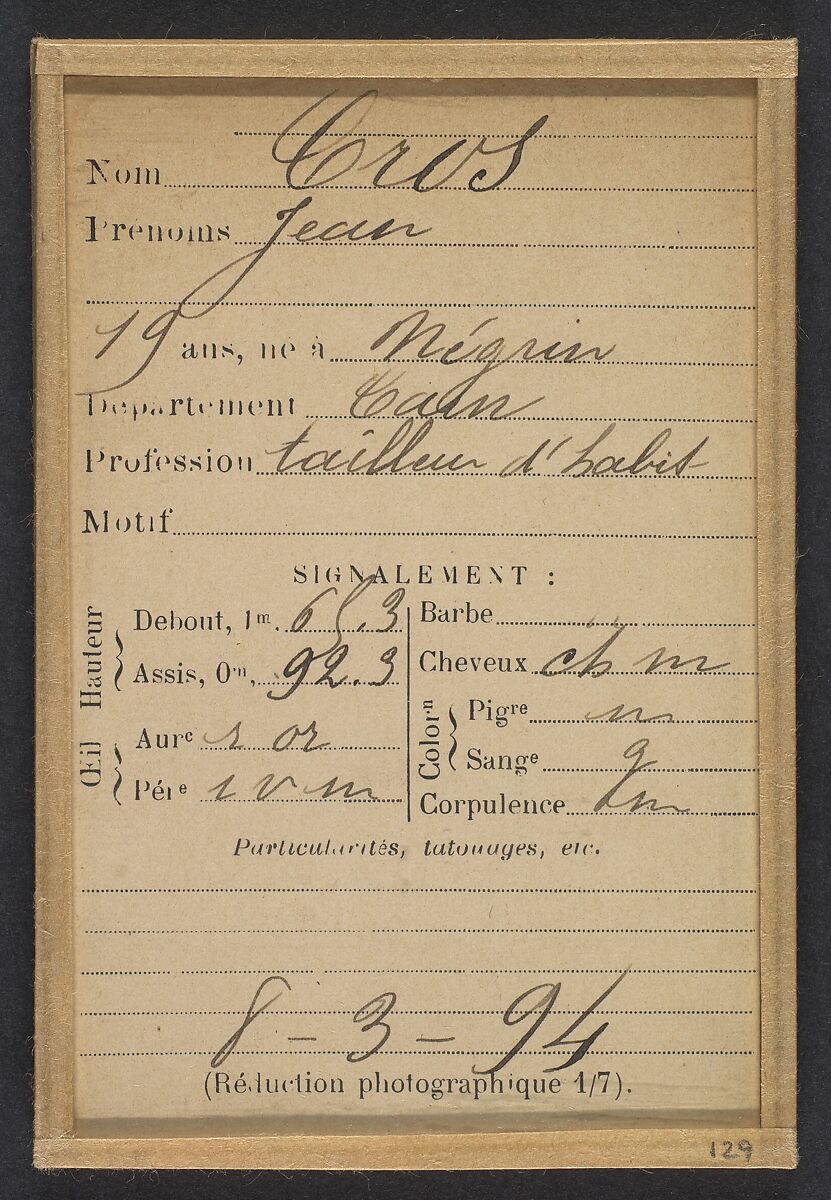 Nom Cros
Prénoms Jean
19 ans, né à Négrin
Département Tarn
Profession tailleur d'habit
Motif
SIGNALEMENT :
Hauteur
Debout, 1m. 65.3
Assis, 0m, 92.3
Œil
Aure r or
Pére i v m
Barbe
Cheveux ch m
Colorn
Pigre m
Sange g
Corpulence m
Particularités, tatouages, etc.
8-3-94
(Réduction photographique 1/7).
129